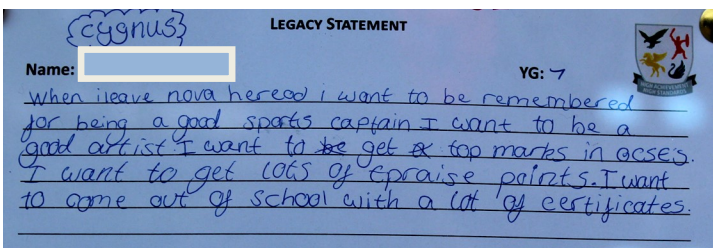 cygnus
LEGACY STATEMENT
Name:
YG: 7
HIGH ACHIEVEMENT
HIGH STANDARDS
When ileave nova hereod i want to be remembered
for being a good sports captain I want to be a
good artist I want to be get a top marks in GCSE's.
I want to get lots of epraise points. I want
to come out of school with a lot of certificates.